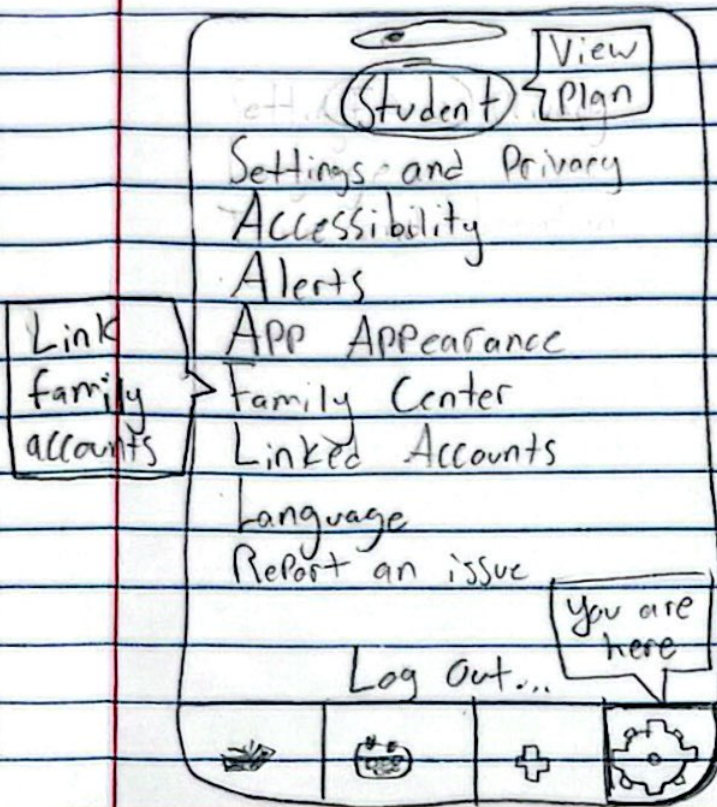 View
Plan
Student
Settings and Privacy
Accessibility
Alerts
App Appearance
Link
family
accounts
Family Center
Linked Accounts
Language
Report an issue
you are
here
Log Out...